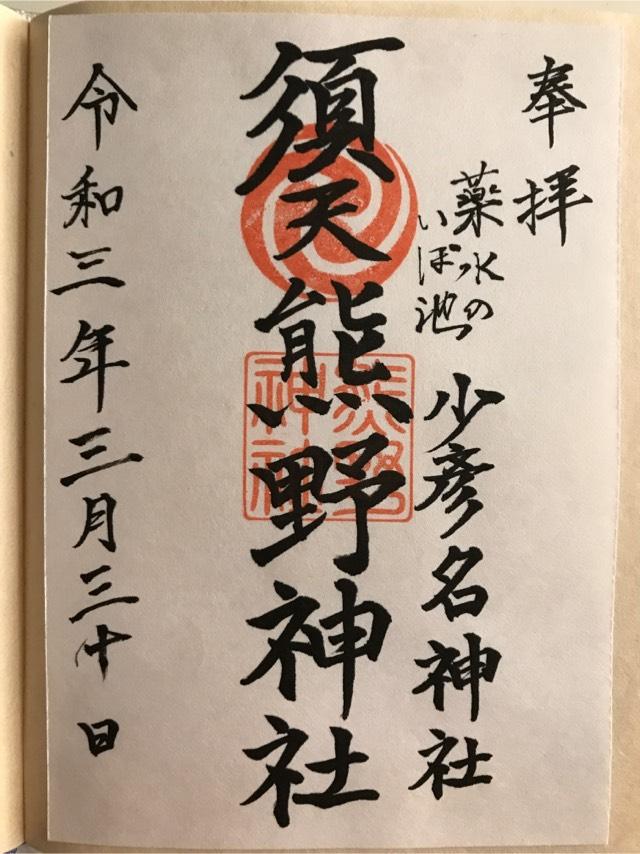 奉拝
薬水の
いぼ池
少彦名神社
須天熊野神社
熊野
神社
令和三年三月三十日